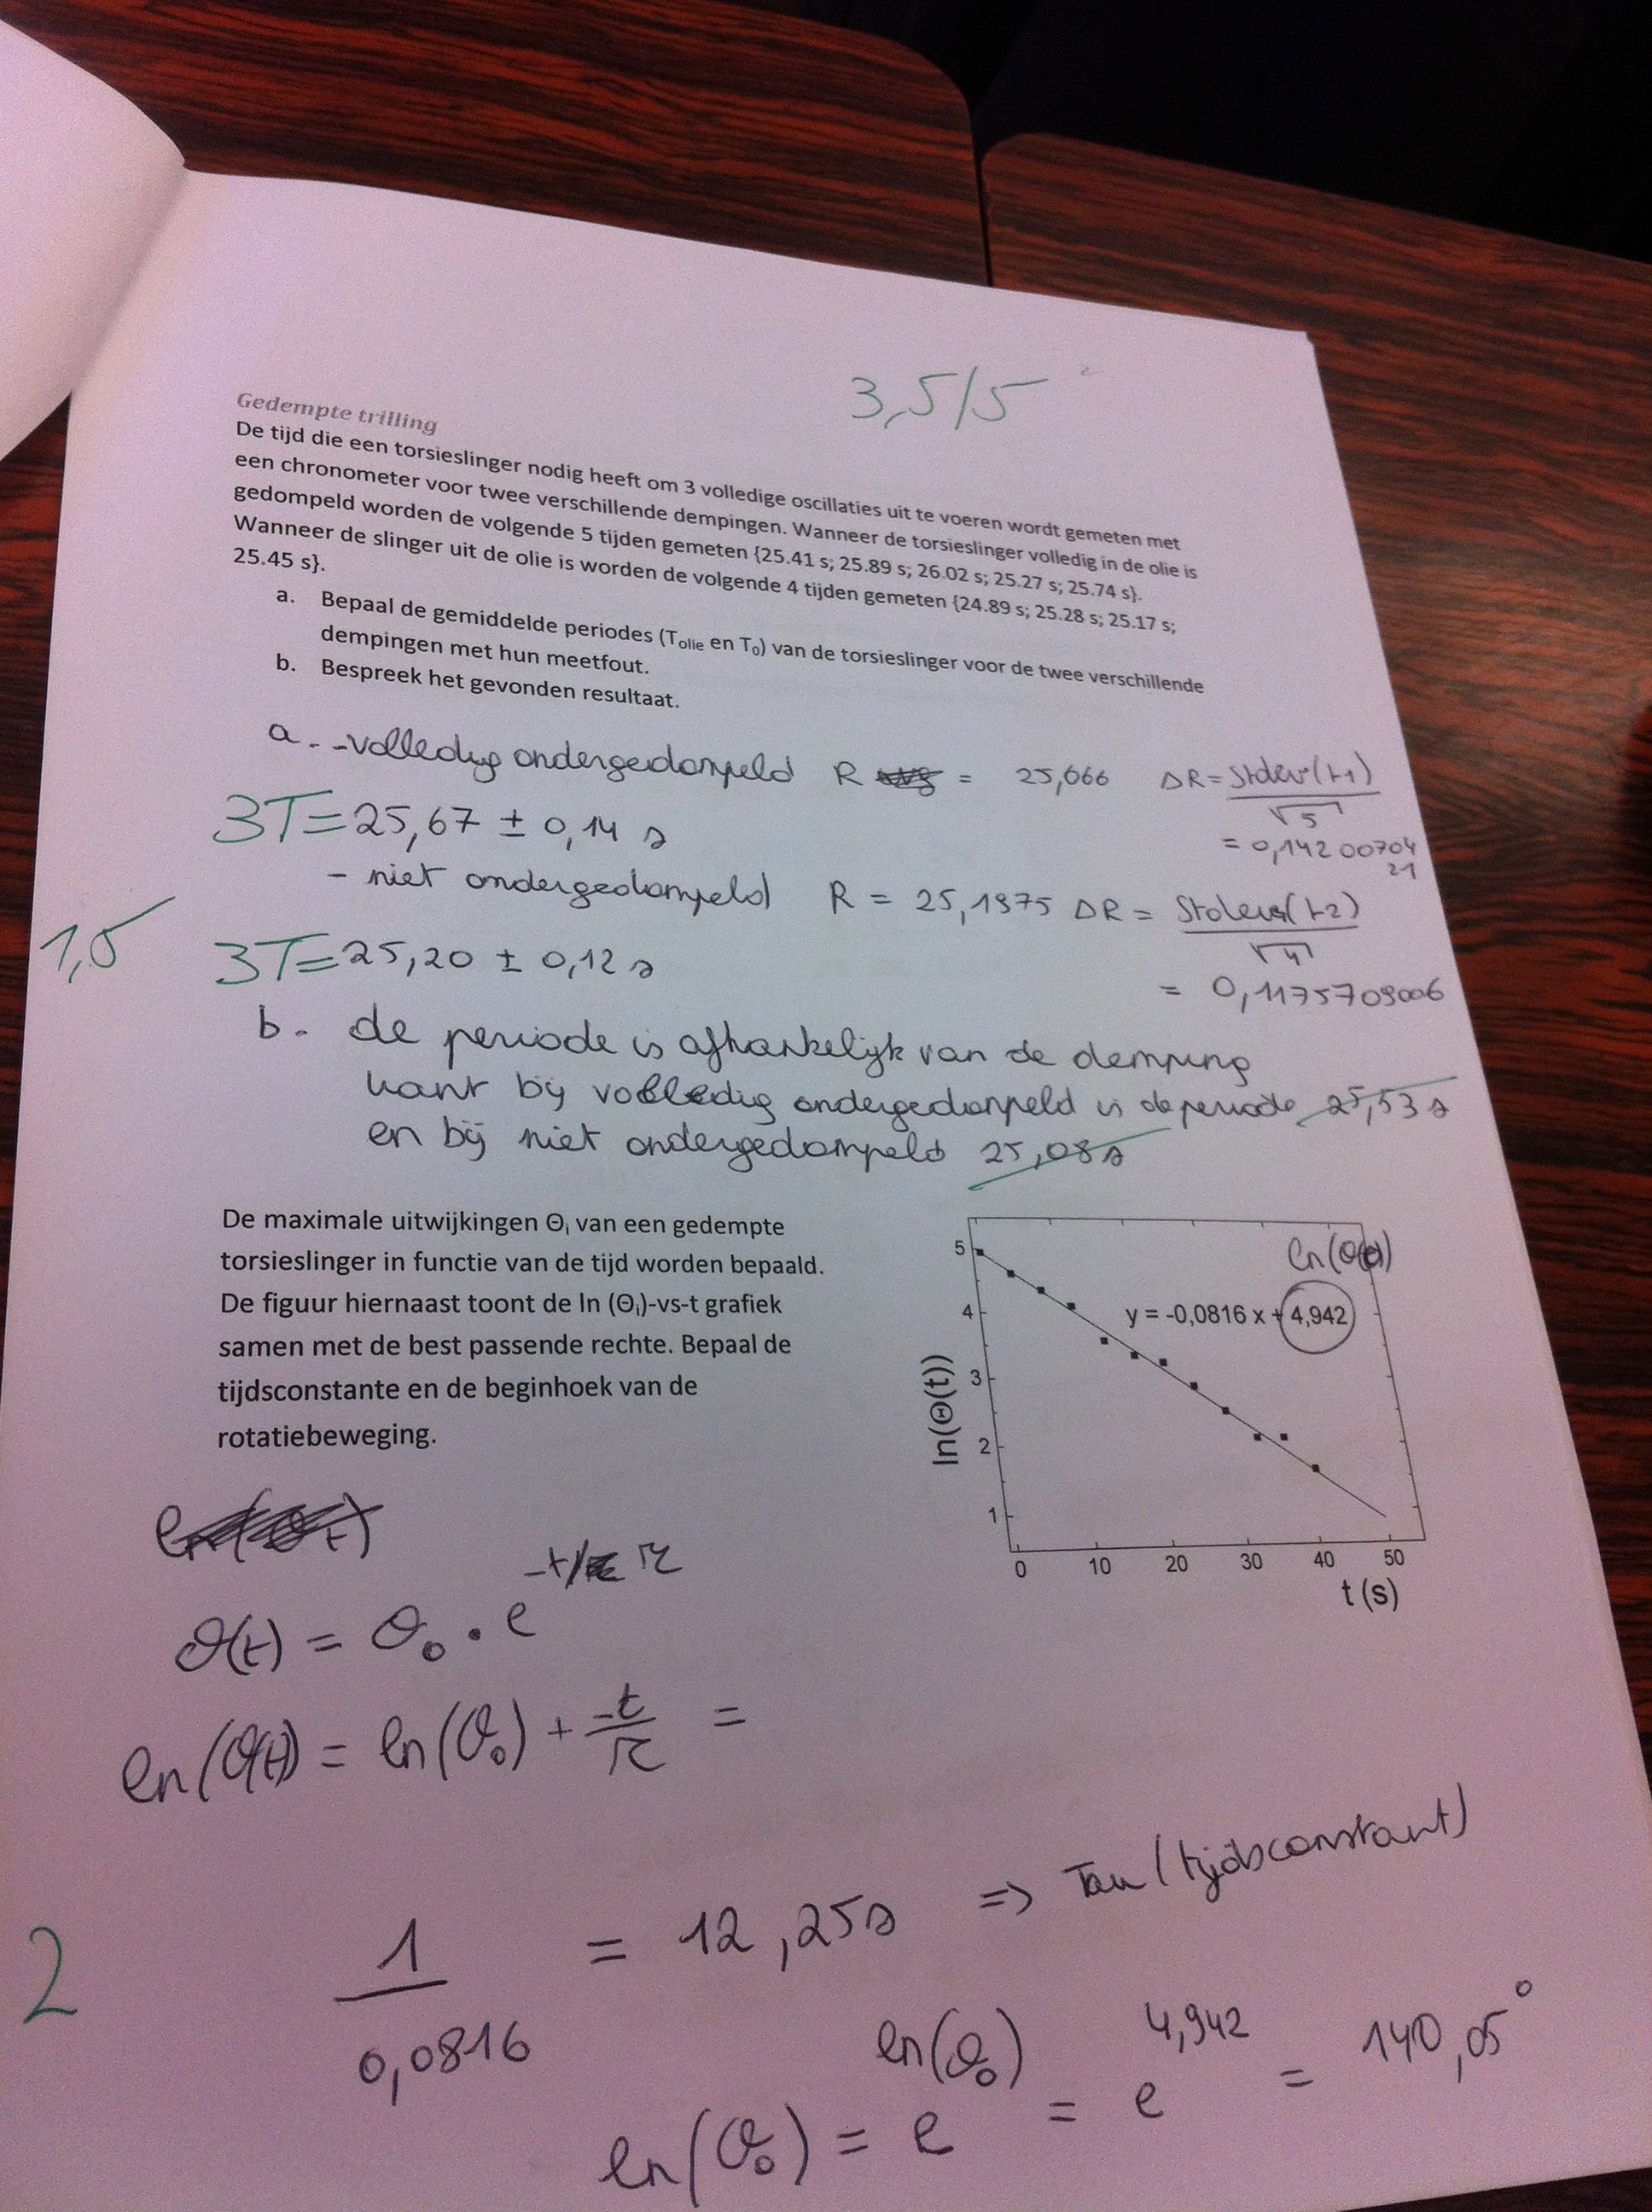 3,5/5
Gedempte trilling
De tijd die een torsieslinger nodig heeft om 3 volledige oscillaties uit te voeren wordt gemeten met
een chronometer voor twee verschillende dempingen. Wanneer de torsieslinger volledig in de olie is
gedompeld worden de volgende 5 tijden gemeten {25.41 s; 25.89 s; 26.02 s; 25.27 s; 25.74 s}.
Wanneer de slinger uit de olie is worden de volgende 4 tijden gemeten {24.89 s; 25.28 s; 25.17 s;
25.45 s}.
a. Bepaal de gemiddelde periodes (Tolie en T0) van de torsieslinger voor de twee verschillende
dempingen met hun meetfout.
b. Bespreek het gevonden resultaat.
a. - volledig ondergedompeld R = 25,666 ΔR = Stdev(t1)
√5
3T= 25,67 ± 0,14 s
= 0,14200704
21
- niet ondergedompeld R = 25,1975 ΔR = Stdev(t2)
√4
1,5
3T= 25,20 ± 0,12 s
= 0,1175709006
b. de periode is afhankelijk van de demping
want bij volledig ondergedompeld is de periode 25,53 s
en bij niet ondergedompeld 25,08 s
De maximale uitwijkingen Θi van een gedempte
torsieslinger in functie van de tijd worden bepaald.
De figuur hiernaast toont de ln (Θi)-vs-t grafiek
samen met de best passende rechte. Bepaal de
tijdsconstante en de beginhoek van de
rotatiebeweging.
ln(θ(t))
y = -0,0816 x + 4,942
5
4
3
2
1
ln(Θ(t))
0 10 20 30 40 50
t (s)
ln(θt)
θ(t) = θ0 . e -t/τ
ln(θ(t)) = ln(θ0) + -t/τ =
2
1
0,0816
= 12,25s => Tau (tijdsconstant)
ln(θ0) = e ln(θ0) = e 4,942 = 140,05°